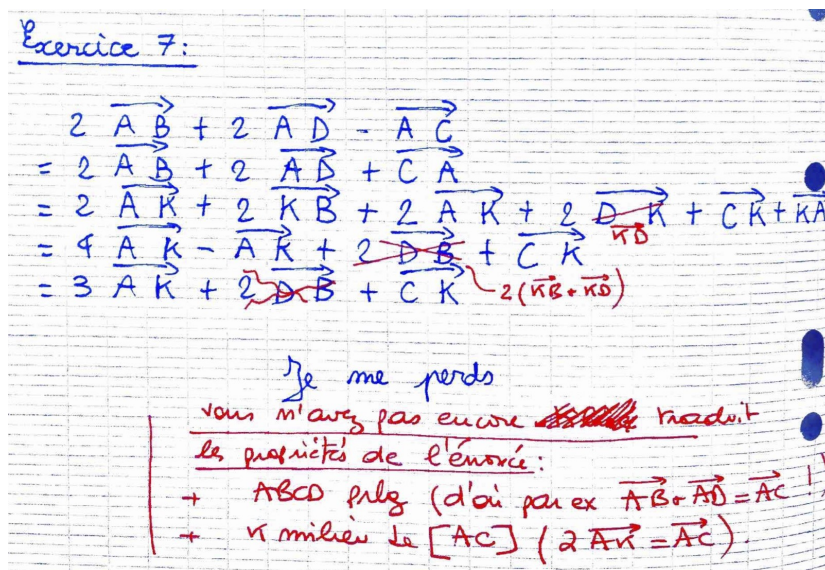 Exercice 7:
2 AB + 2 AD - AC
= 2 AB + 2 AD + CA
= 2 AK + 2 KB + 2 AK + 2 DK + CK + KA
KD
= 4 AK - AK + 2 DB + CK
= 3 AK + 2 DB + CK
2(KB + KD)
Je me perds
vous n'avez pas encore traduit
les propriétés de l'énoncé:
+ ABCD prlg (d'où par ex AB + AD = AC !)
+ K milieu de [AC] (2 AK = AC).